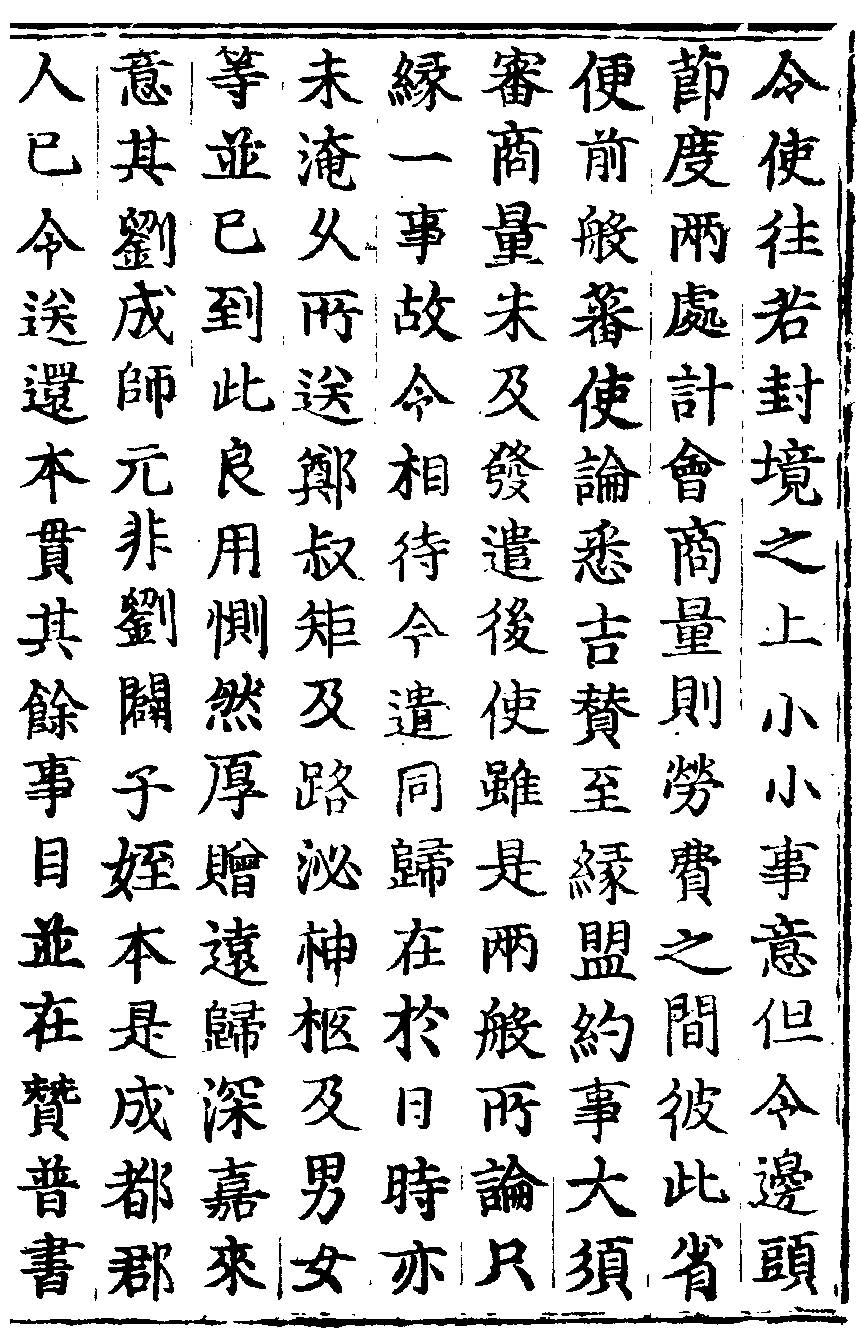 令使往若封境之上小小事意但令邊頭
節度兩處計會商量則勞費之間彼此省
便前般蕃使論悉吉賛至縁盟約事大須
審商量未及發遣後使雖是兩般所論只
縁一事故令相待今遣同歸在於日時亦
未淹久所送鄭叔矩及路泌神柩及男女
等並已到此良用惻然厚贈遠歸深嘉來
意其劉成師元非劉闢子姪本是成都郡
人已令送還本貫其餘事目並在贊普書